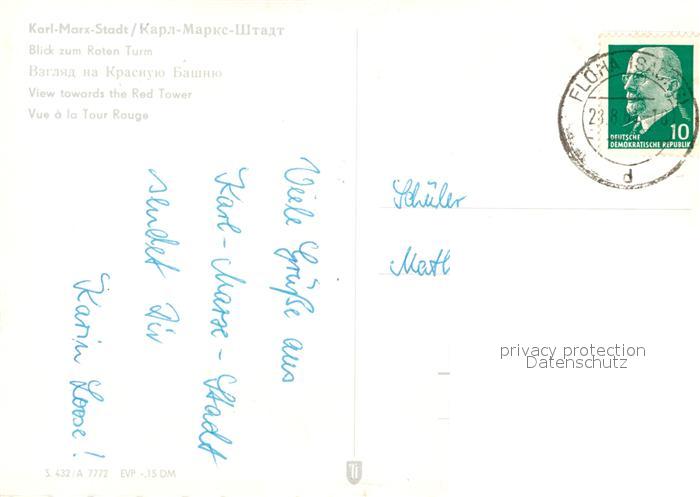 Karl-Marx-Stadt / Карл-Маркс-Штадт
Blick zum Roten Turm
Взгляд на Красную Башню
View towards the Red Tower
Vue à la Tour Rouge
Viele Grüße aus
Karl-Marx-Stadt
sendet Dir
Karin Loose!
S. 432/A 7772 EVP -,15 DM
FLÖHA
d
10
DEUTSCHE
DEMOKRATISCHE REPUBLIK
Schüler
privacy protection
Datenschutz